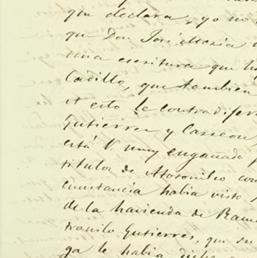 que declara, yo no
que Don José María
una escritura que
Cadillo, que tambien
et esto le contradifer
Gutierrez y Carreon
está V muy engañado
titulos de Atotonilco con
cunstancia habia visto
de la hacienda de Ram
tranilo Gutierres, que su
ga le habia